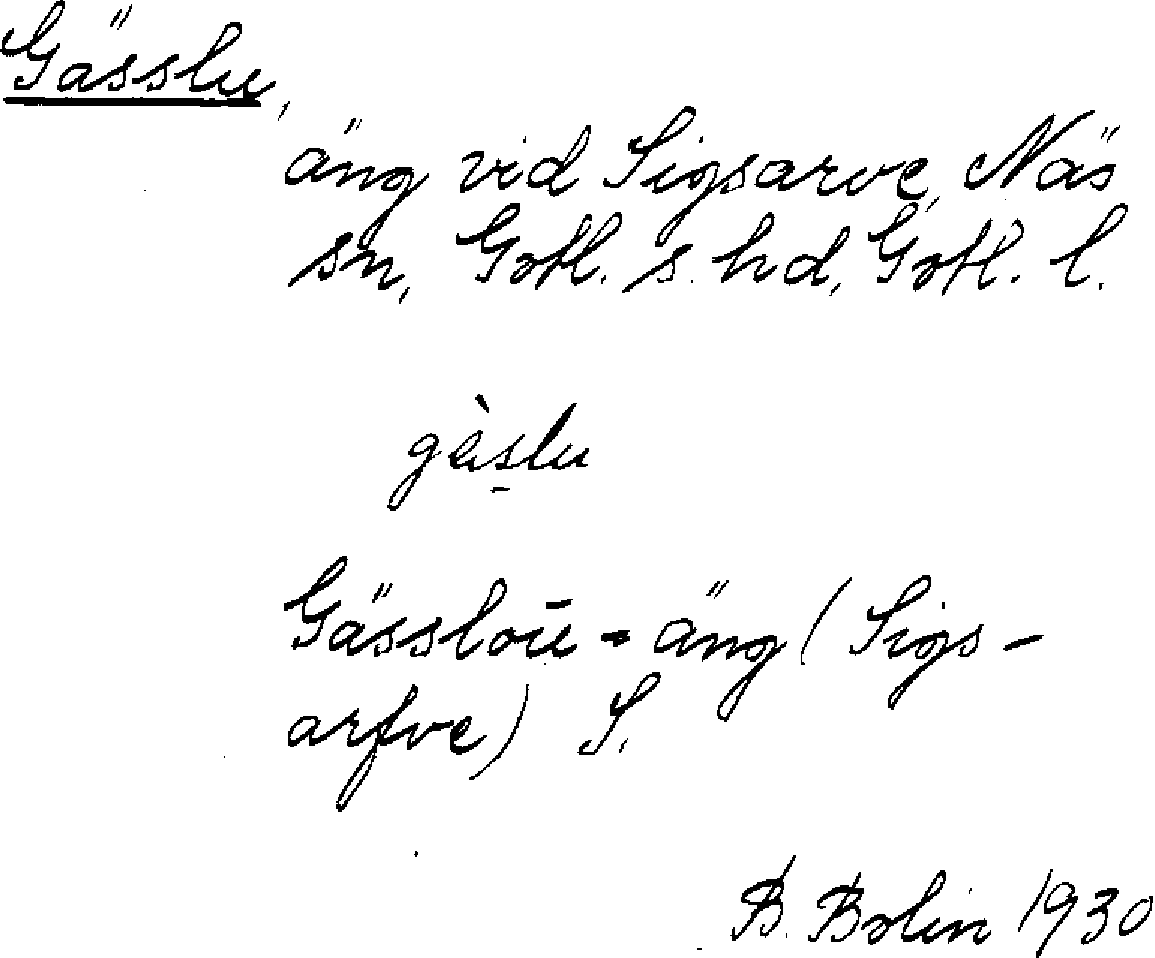 Gässlu,
äng vid Sigsarve, Näs
sn, Gotl. s. hd, Gotl. l.
gàslu
Gässloū-äng (Sigs-
arfve) S.
B. Bolin 1930